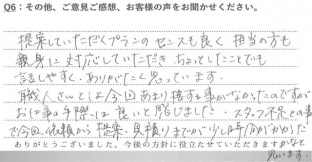 Q6：その他、ご意見ご感想、お客様の声をお聞かせください。
提案していただくプランのセンスも良く 担当の方も
親身に対応していただき ちょっとしたことでも
話しやすく、ありがたく思っています。
職人さんとは今回あまり接する事がなかったのですが
お仕事の手際は良いと感じました。スタッフ不足との事
で今回、依頼から提案、見積りまでが少し時間がかかった
ありがとうございました。今後の方針に役立たせていただきますかなと
思います。